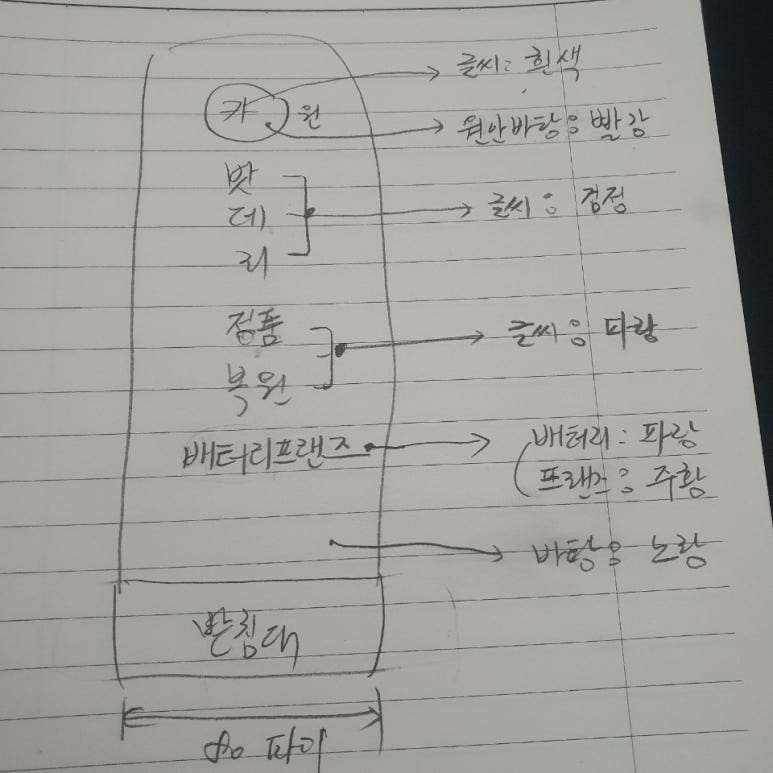 카 원 글씨: 흰색
원안바탕: 빨강
밧
데 글씨: 검정
리
정품
복원 글씨: 파랑
배터리프랜즈 배터리: 파랑
프랜즈: 주황
바탕: 노랑
받침대
파이